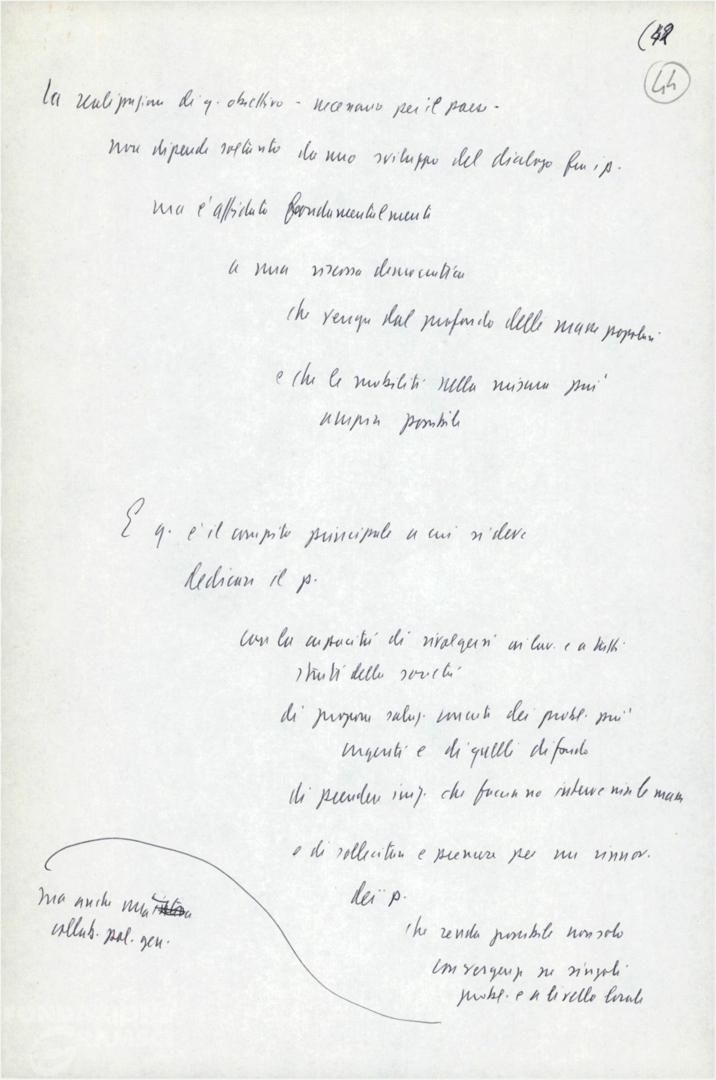 (42
44
La realizzazione di q. obiettivo - necessario per il paese -
non dipende soltanto da uno sviluppo del dialogo fra i p.
ma è affidata fondamentalmente
a una riscossa democratica
che venga dal profondo delle masse popolari
e che le mobiliti nella misura più
ampia possibile
E q. è il compito principale a cui si deve
dedicare il p.
con la capacità di rivolgersi ai lav. e a tutti
strati della società
di proporre soluz. concrete dei probl. più
urgenti e di quelli di fondo
di prendere iniz. che facciano intervenire le masse
e di sollecitare e premere per un rinnov.
dei p.
che renda possibile non solo
convergenze su singoli
probl. e a livello locale
ma anche una
collab. pol. gen.